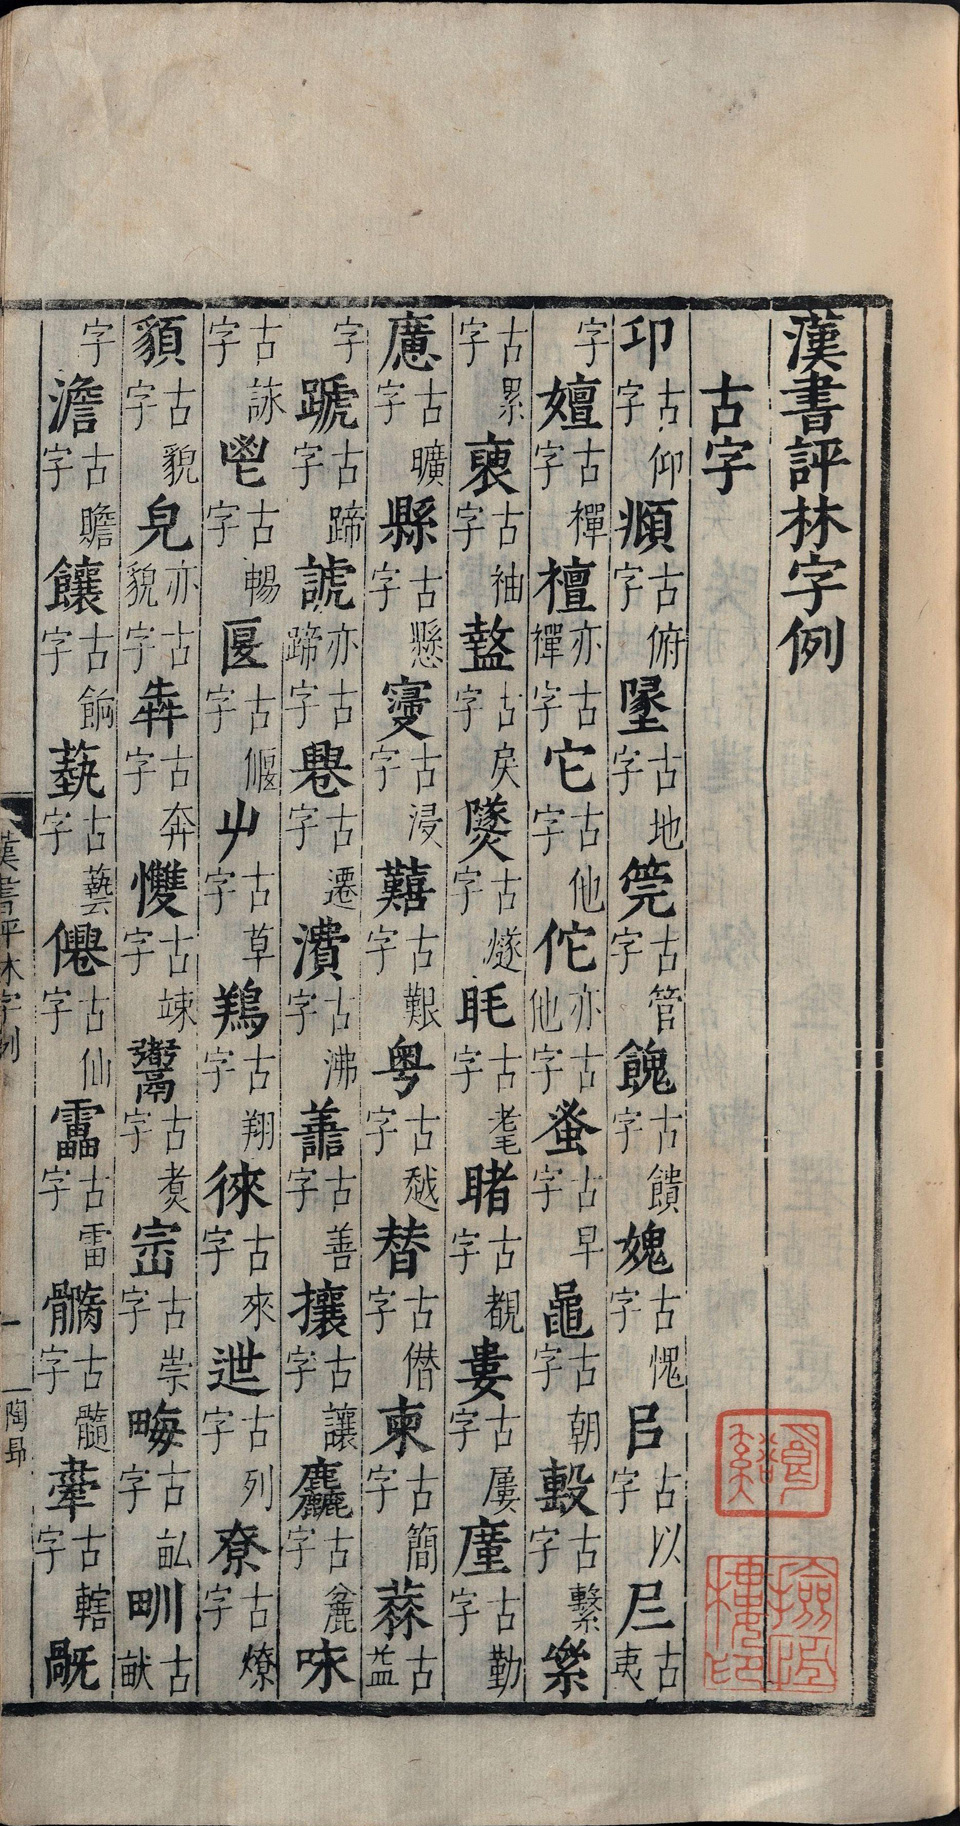 漢書評林字例
古字
卬古仰字頫古俯字墬古地字筦古管字餽古饋字媿古愧字㠯古以字𡰥古夷
字嬗古禪字襢亦古禪字它古他字佗亦古他字蚤古早字鼂古朝字毄古繫字絫
古累字褏古袖字盭古戾字㷭古燧字眊古耄字睹古覩字婁古屢字廑古勤字
應古曠字縣古懸字寖古浸字囏古艱字粤古越字朁古僭字柬古簡字𦯭古益
字蹏古蹄字號亦古蹄字䙴古遷字灒古沸字譱古善字攘古讓字麤古麄字味
古詠字鬯古暢字匽古偃字屮古草字鴹古翔字徠古來字迣古列字尞古燎
字䫉古貌字皃亦古貌字犇古奔字㦼古竦字鬻古煑字崈古崇字畮古畝字甽古畎
字澹古贍字饟古餉字蓺古藝字僊古仙字靁古雷字髓古髓字舝古轄字翫
漢書評林字例
一
陶昻